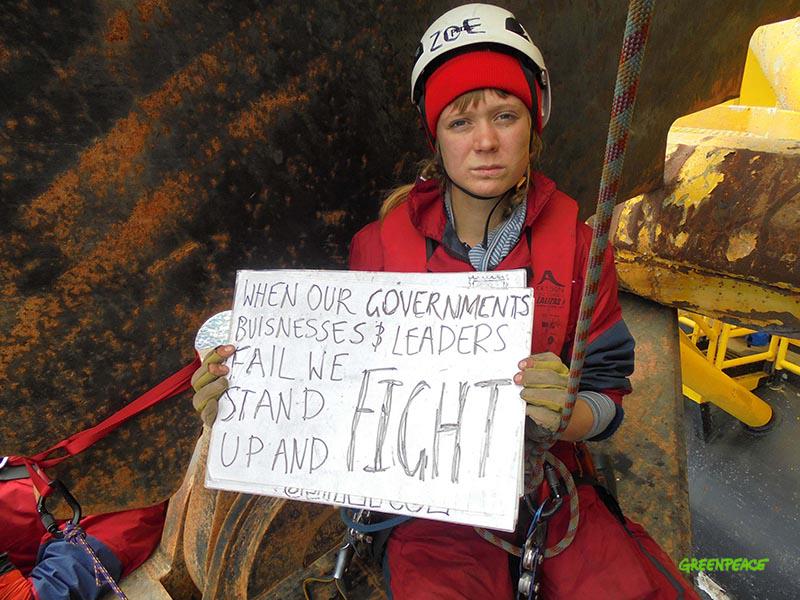 ZOE
WHEN OUR GOVERNMENTS
BUISNESSES & LEADERS
FAIL WE
STAND
UP AND FIGHT
LALIZAS
GREENPEACE